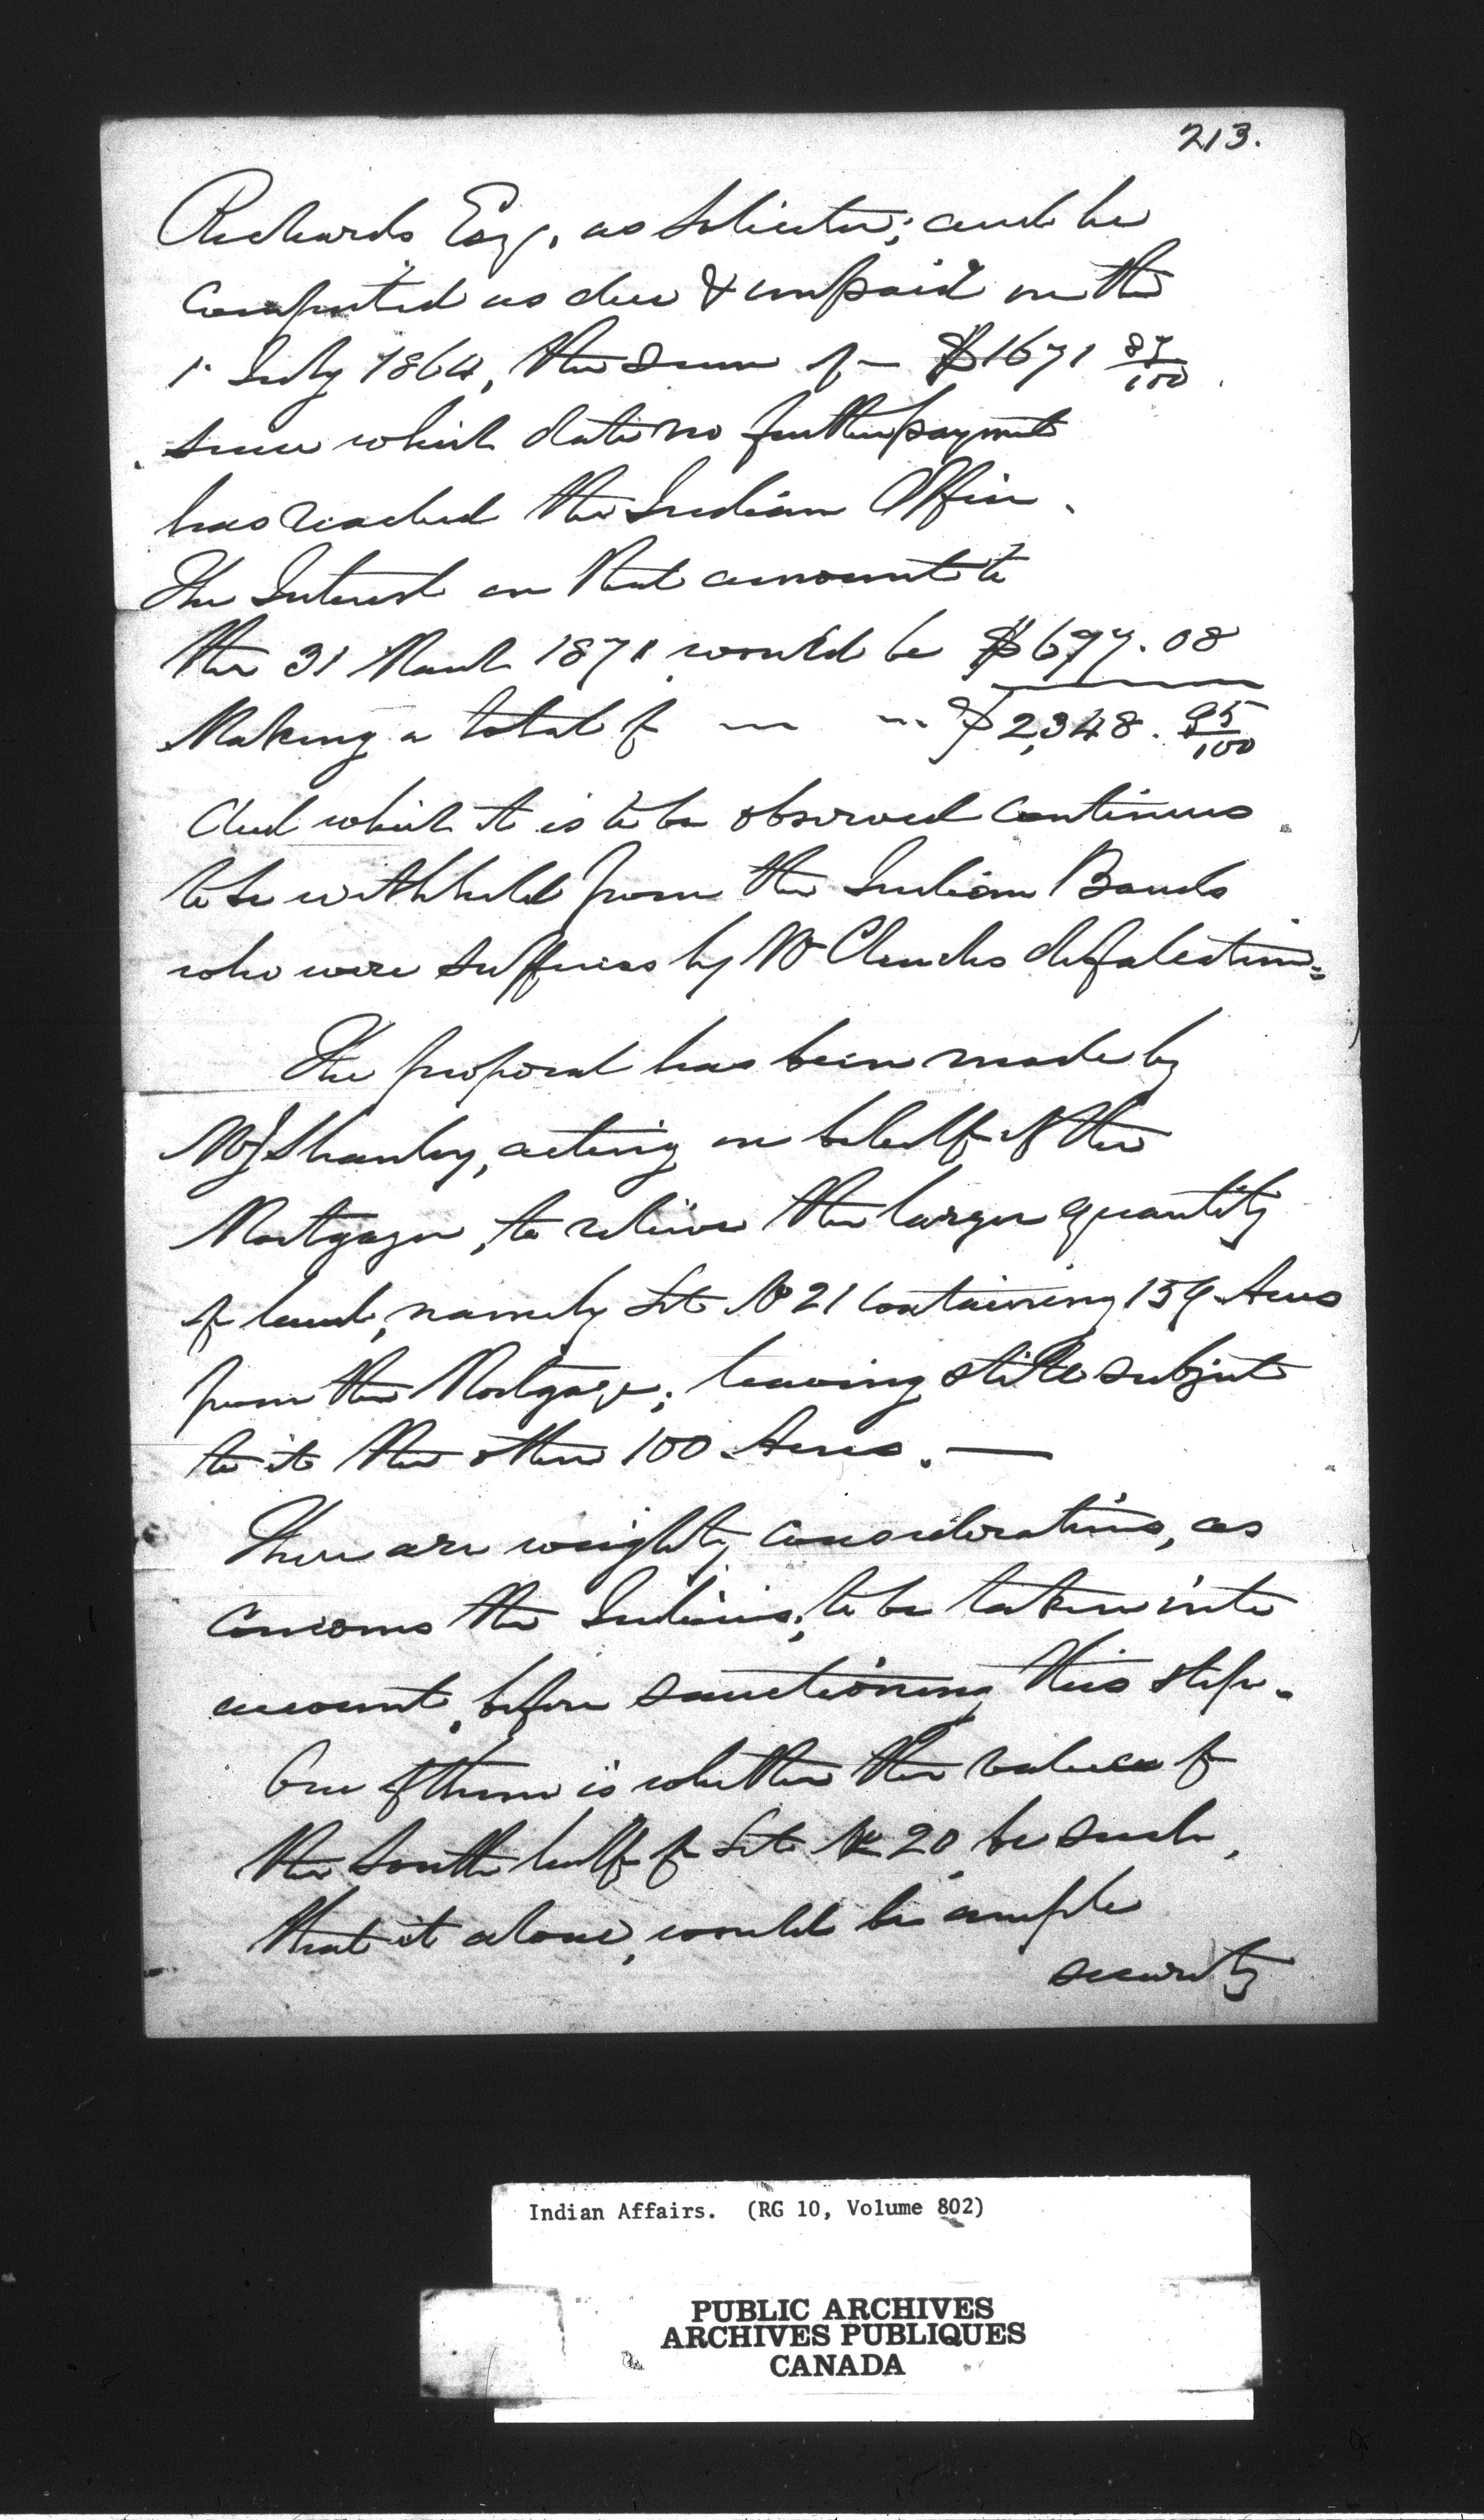 213.
Richards Esqr. as Solicitor; and he
computed as due & unpaid on the
1st July 1864, the Sum of — $1671 87/100
since which date no further payment
has reached the Indian Office.
The Interest on that amount to
the 31 March 1871 would be $677.08
Making a total of — — $2,348.95/100
And which it is to be observed continues
to be withheld from the Indian Bands
who were sufferers by Mr defalcation=
The proposal has been made by
Mr Shanly, acting on behalf of the
Mortgagor, to relieve the larger quantity
of land, namely Lot No 21 containing 159 Acres
from the Mortgage; leaving still subject
to it the other 100 Acres. —
There are weighty considerations, as
concerns the Indians, to be taken into
account, before sanctioning this step.
One of them is whether the value of
the South half of Lot No 20, be such,
that it alone, would be ample
security
Indian Affairs. (RG 10, Volume 802)
PUBLIC ARCHIVES
ARCHIVES PUBLIQUES
CANADA